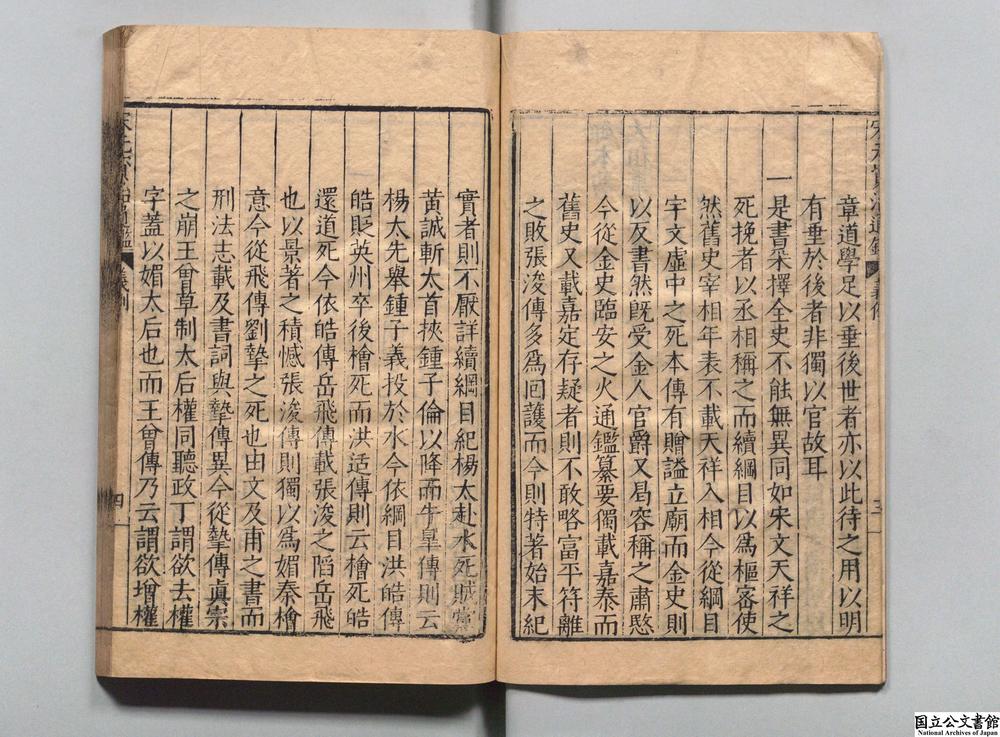 章道學足以垂後世者亦以此待之用以明
有垂於後者非獨以官故耳
一是書采擇全史不能無異同如宋文天祥之
死挽者以丞相稱之而續綱目以爲樞密使
然舊史宰相年表不載天祥入相今從綱目
宇文虛中之死本傳有贈謚立廟而金史則
以反書然既受金人官爵又曷容稱之肅愍
今從金史臨安之火通鑑纂要獨載嘉泰而
舊史又載嘉定存疑者則不敢略富平符離
之敗張浚傳多爲回護而今則特著始末紀
三
實者則不厭詳續綱目紀楊太赴水死賊黨
黃誠斬太首挾鍾子倫以降而牛臯傳則云
楊太先舉鍾子義投於水今依綱目洪皓傳
皓貶英州卒後檜死而洪适傳則云檜死皓
還道死今依皓傳岳飛傳載張浚之陷岳飛
也以景著之積憾張浚傳則獨以爲媚秦檜
意今從飛傳劉摯之死也由文及甫之書而
刑法志載及書詞與摯傳異今從摯傳眞宗
之崩王曾草制太后權同聽政丁謂欲去權
字蓋以媚太后也而王曾傳乃云謂欲增權
四
国立公文書館
National Archives of Japan